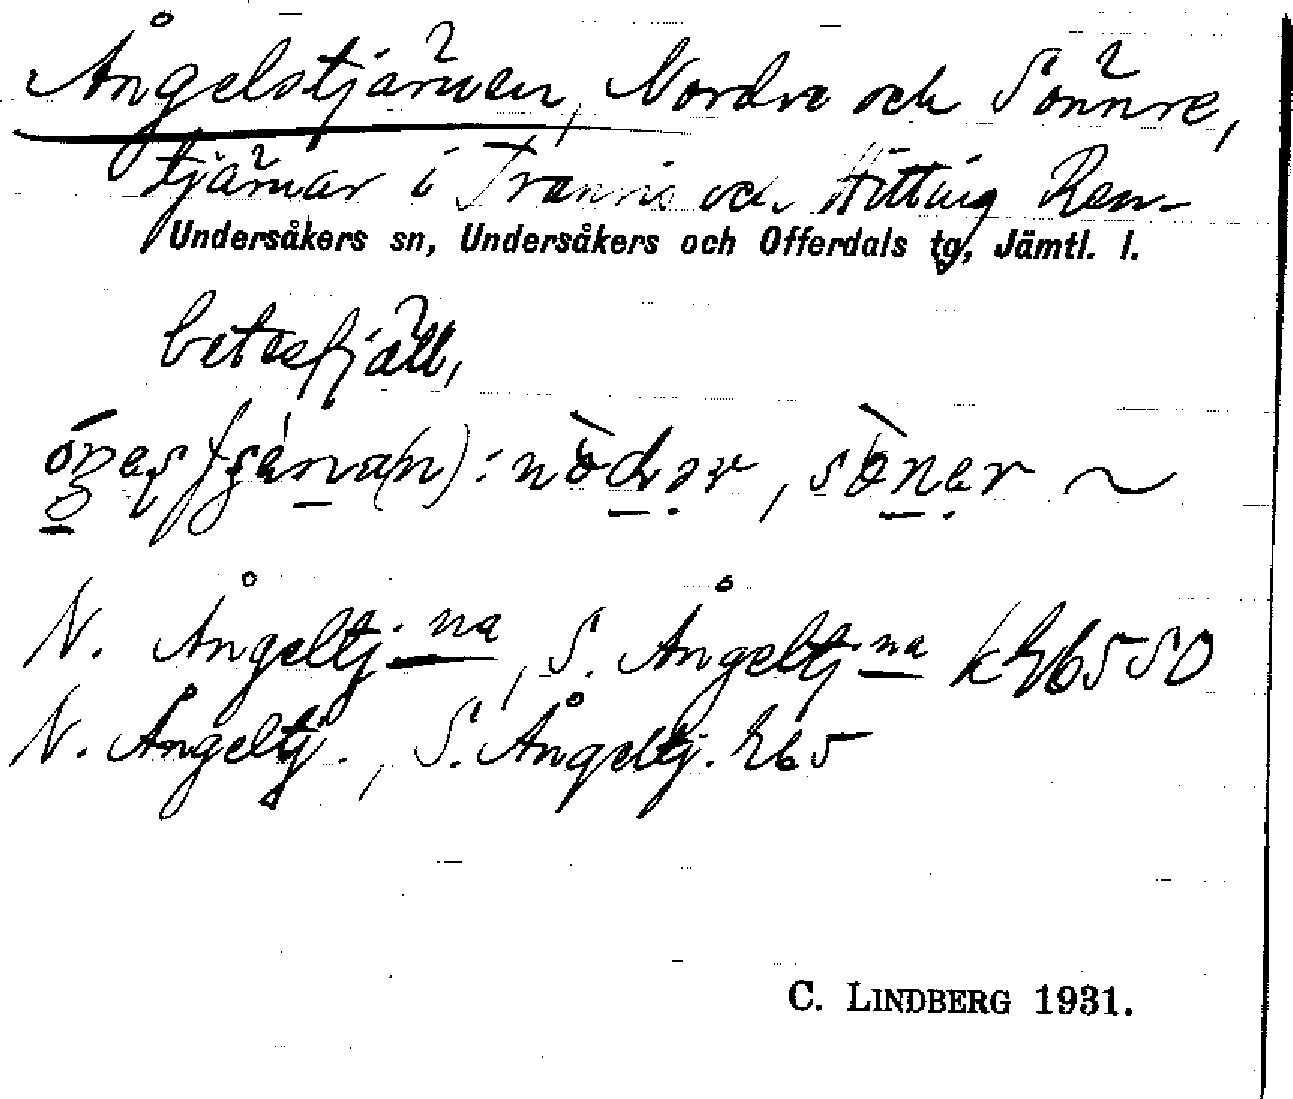 Ångelstjärnen, Nordre och Sönnre,
tjärnar i Tranris och Hitting Ren-
Undersåkers sn, Undersåkers och Offerdals tg, Jämtl. l.
betesfjäll,
N. Ångeltj:na, S. Ångeltj:na k½65 SO
N. Ångeltj., S. Ångeltj. ½65
C. LINDBERG 1931.